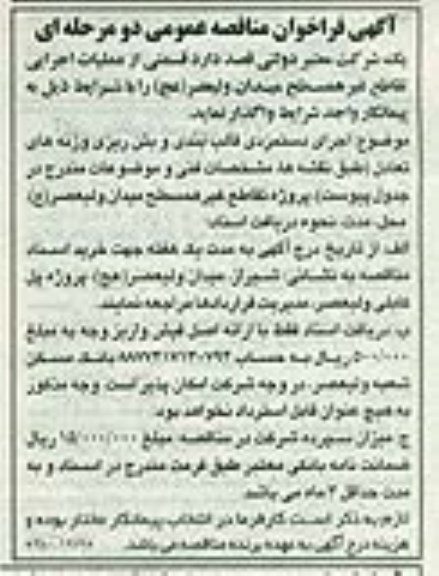 آگهی فراخوان مناقصه عمومی دو مرحله ای
یک شرکت معتبر دولتی قصد دارد قسمتی از عملیات اجرایی
تقاطع غیرهمسطح میدان ولیعصر(عج) را با شرایط ذیل به
پیمانکار واجد شرایط واگذار نماید.
موضوع: اجرای دستمزدی قالب بندی و بتن ریزی وزنه های
تعادل (طبق نقشه ها، مشخصات فنی و موضوعات مندرج در
جدول پیوست) پروژه تقاطع غیرهمسطح میدان ولیعصر(ع)
محل، مدت، نحوه دریافت اسناد:
الف: از تاریخ درج آگهی به مدت یک هفته جهت خرید اسناد
مناقصه به نشانی: شیراز، میدان ولیعصر(عج)، پروژه پل
کابلی ولیعصر، مدیریت قراردادها مراجعه نمایند.
ب: دریافت اسناد فقط با ارائه اصل فیش واریز وجه به مبلغ
۵۰۰/۰۰۰ ریال به حساب بانک مسکن
شعبه ولیعصر، در وجه شرکت امکان پذیر است. وجه مذکور
به هیچ عنوان قابل استرداد نخواهد بود.
ج: میزان سپرده شرکت در مناقصه: مبلغ ۱۵/۰۰۰/۰۰۰ ریال
ضمانت نامه بانکی معتبر طبق فرمت مندرج در اسناد و به
مدت حداقل ۳ ماه می باشد.
لازم به ذکر است کارفرما در انتخاب پیمانکار مختار بوده و
هزینه درج آگهی به عهده برنده مناقصه می باشد.